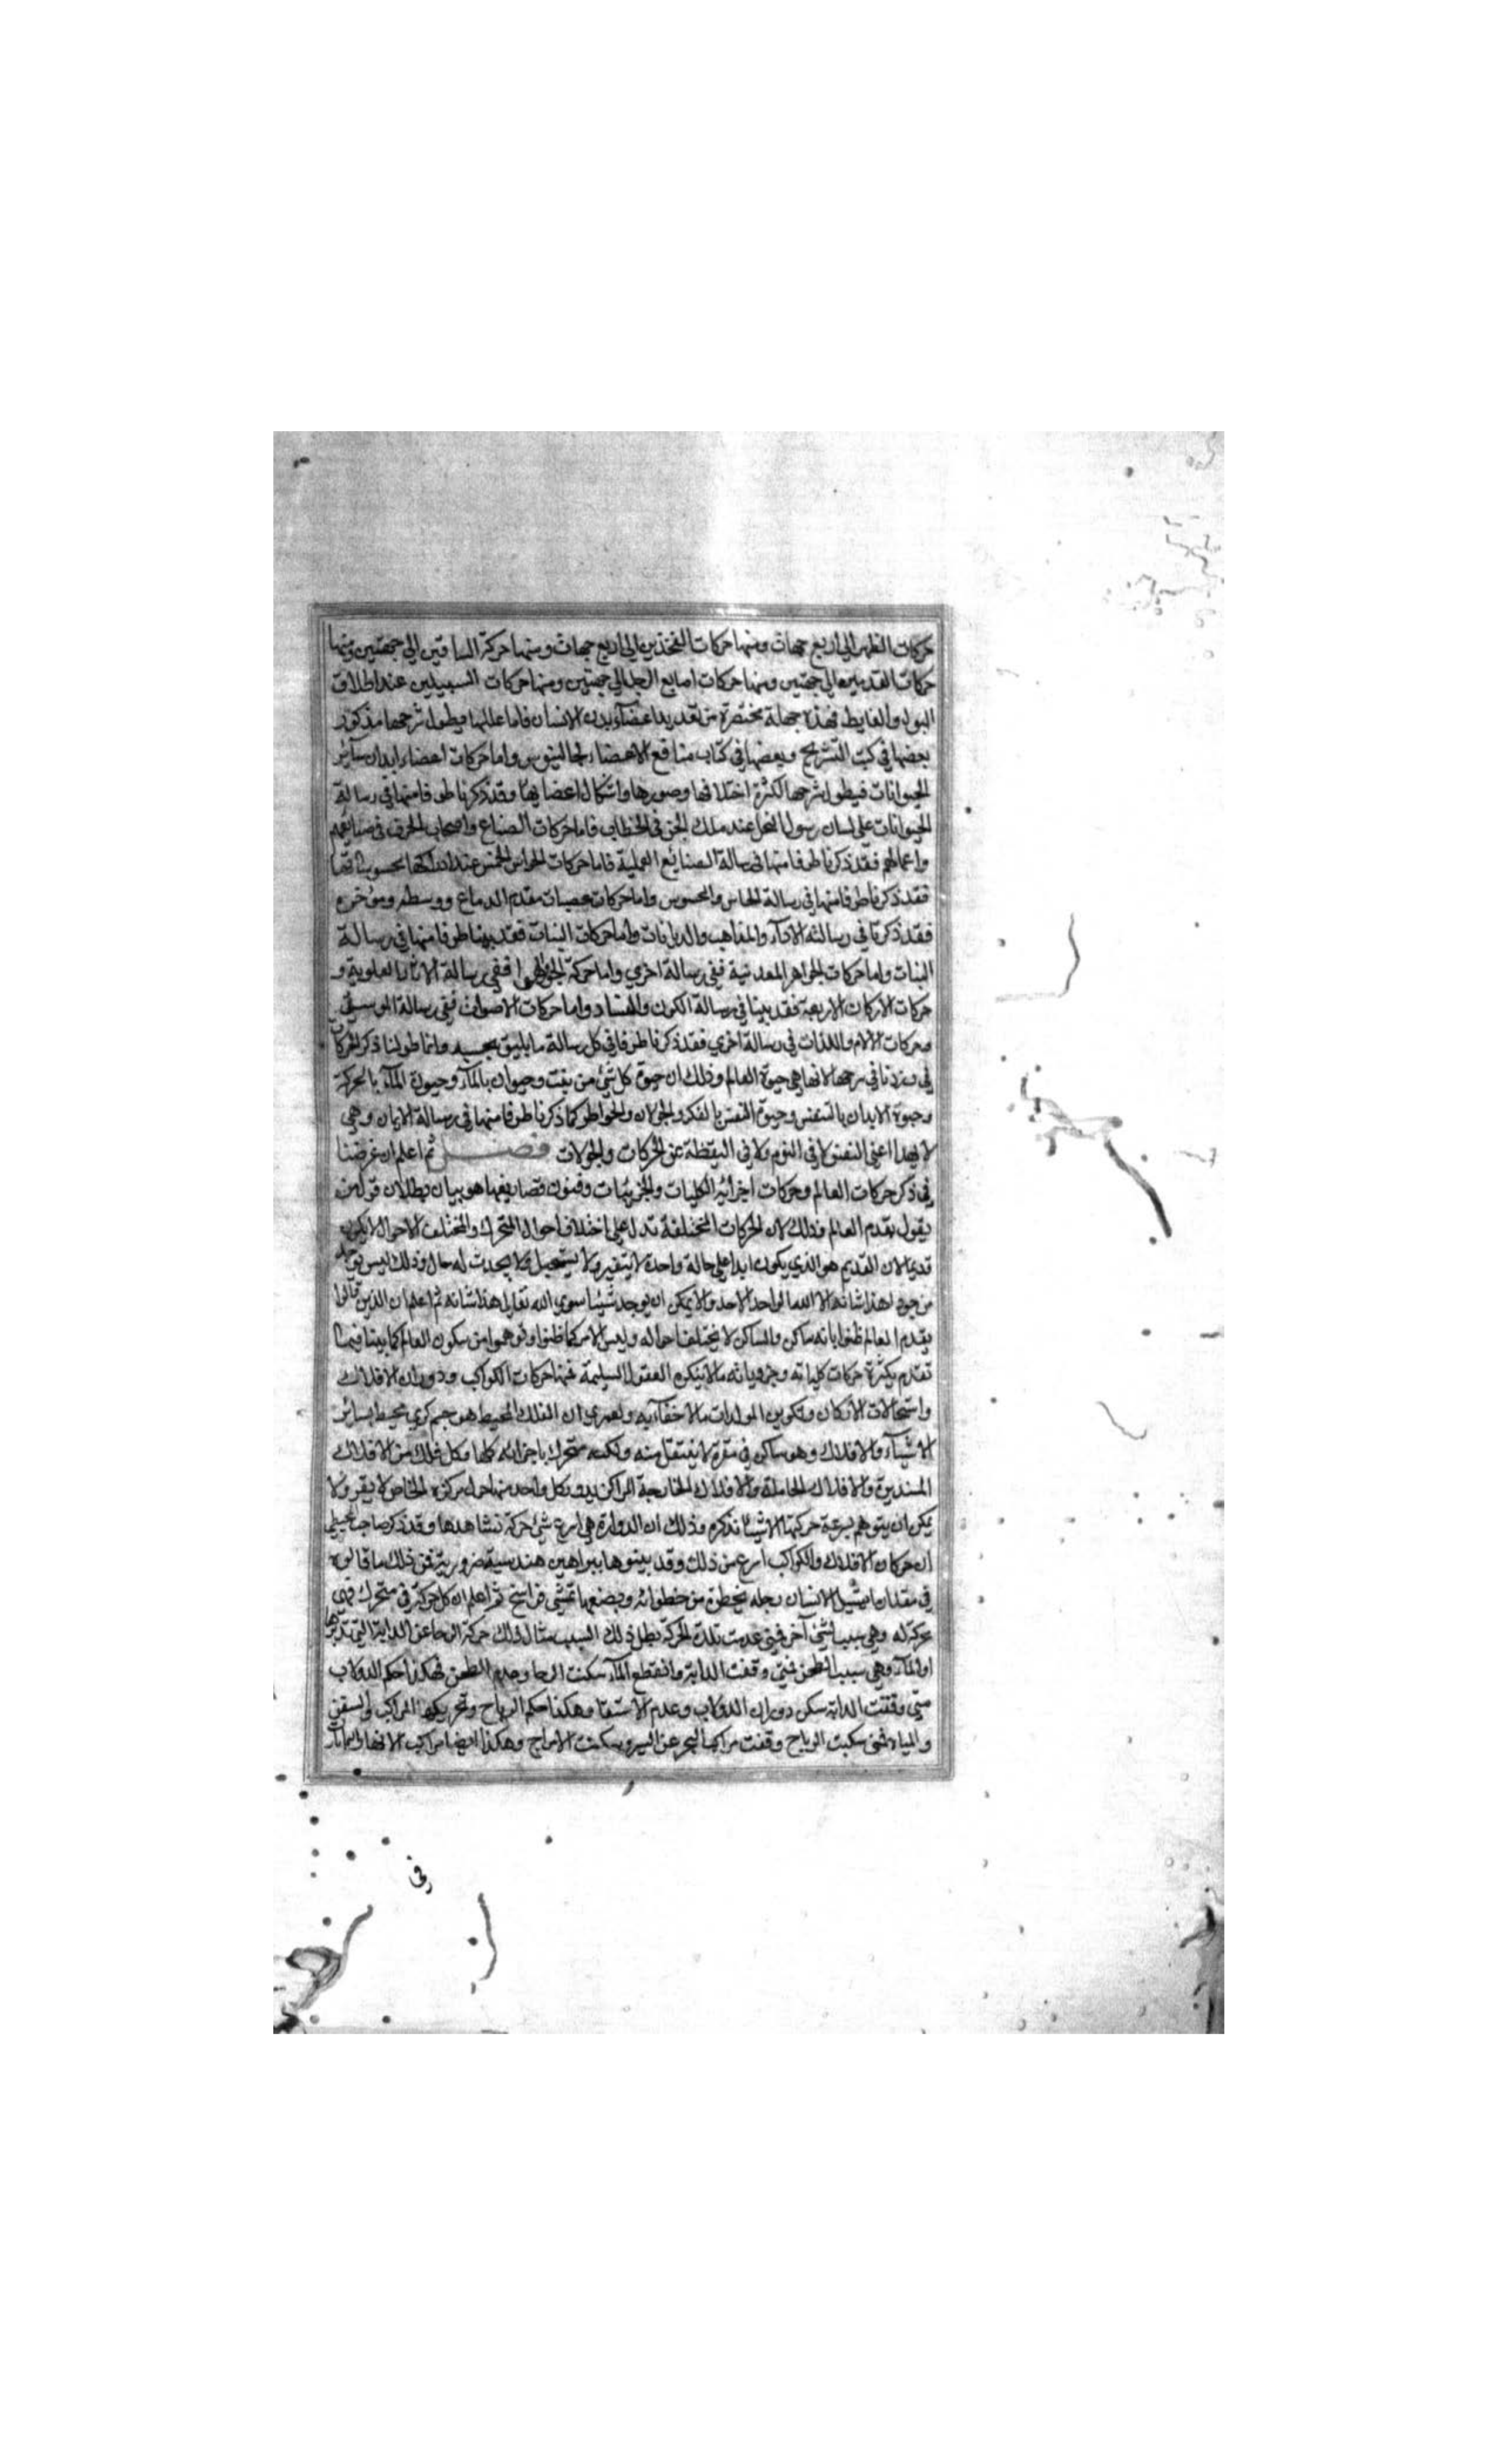 حركات الظهر الي اربع جهات ومنها حركات الفخذين الي اربع جهات ومنها حركة الساقين الي جهتين ومنها
حركات القدمين الي جهتين ومنها حركات اصابع الرجل الي جهتين ومنها حركات السبيلين عند اطلاق
البول والغايط فهذه جملة مختصرة من تعديد اعضآء بدن الانسان فاما عللها فيطول شرحها مذكور
بعضها في كتب التشريح وبعضها في كتاب منافع الاعضاء لجالينوس واما حركات اعضاء ابدان سآئر
الحيوانات فيطول شرحها لكثرة اختلافها وصورها واشكال اعضايها وقد ذكرنا طرفا منها في رسالة
الحيوانات على لسان رسول النحل عند ملك الجن في الخطاب فاما حركات الصناع واصحاب الحرف في صنايعهم
واعمالهم فقد ذكرنا طرفا منها في رسالة الصنايع العملية فاما حركات الحواس الخمس عند ادراكها محسوساتها
فقد ذكرنا طرفا منها في رسالة الحاس والمحسوس واما حركات عصبات مقدم الدماغ ووسطه وموخره
فقد ذكرنا في رسالة الارآء والمذاهب والديانات واما حركات النبات فقد بينا طرفا منها في رسالة
النبات واما حركات الجواهر المعدنية ففي رسالة اخري واما حركة الجو والهوا ففي رسالة الاثار العلوية و
حركات الاركان الاربعة فقد بينا في رسالة الكون والفساد واما حركات الاصوات ففي رسالة الموسيقي
وحركات الالام واللذات في رسالة اخري فقد ذكرنا طرفا في كل رسالة ما يليق بحسبه وانما طولنا ذكر الحركات
في وزدنا في شرحها لانها هي حيوة العالم وذلك ان حيوة كل شئ من نبت وحيوان بالمآء وحيوة المآء بالحركة
وحيوة الابدان بالتنفس وحيوة النفس بالفكر والجولان والخواطر كما ذكرنا طرفا منها في رسالة الايمان وهي
لا تهدا اعني النفس لا في النوم ولا في اليقظة عن الحركات والجولات فصل ثم اعلم ان غرضنا
في ذكر حركات العالم وحركات اجزائه الكليات والجزئيات وفنون تصاريفها هو بيان بطلان قول من
يقول بقدم العالم وذلك لان الحركات المختلفة تدل على اختلاف احوال المتحرك والمختلف الاحوال لا يكون
قديما لان القديم هو الذي يكون ابدا على حالة واحدة لا يتغير ولا يستحيل ولا يحدث له حال وذلك ليس يوجد
من جود لهذا شانه الا الله الواحد الاحد ولا يمكن ان يوجد شيئا سوي الله تعالى هذا شانه ثم اعلم ان الذين قالوا
بقدم العالم ظنوا بانه ساكن والساكن لا تختلف احواله وليس الامر كما ظنوا وتوهموا من سكون العالم كما بينا فيما
تقدم بكثرة حركات كلياته وجزوياته ما لا ينكره العقول السليمة فمنها حركات الكواكب ودوران الافلاك
واستحالات الاركان وتكوين المولدات ما لا خفآء به ولعمري ان الفلك المحيط هو جسم كري محيط بسائر
الاشيآء والافلاك وهو ساكن في مقره لا ينتقل منه ولكنه متحرك باجزائه كلها وكل فلك من الافلاك
المستديرة والافلاك الحاملة والافلاك الخارجة المراكز يدور كل واحد منها حول مركزه الخاص لا يقر ولا
يمكن ان يتوهم بسرعة حركتها الا شيئا نذكره وذلك ان الدوارة هي اسرع شئ حركة نشاهدها وقد ذكر صاحب المجسطي
ان حركات الافلاك والكواكب اسرع من ذلك وقد بينوها ببراهين هندسية ضرورية فمن ذلك ما قالوه
في مقدار ما يشيل الانسان رجله بخطوة من خطواته ويضعها تمشي فراسخ ثم اعلم ان كل حركة في متحرك فهي
محركة له وهي سبب لشئ آخر فمتي عدمت تلك الحركة بطل ذلك السبب مثال ذلك حركة الرحا عن الدابة التي تديرها
او المآء وهي سبب الطحن فمتي وقفت الدابة وانقطع المآء سكنت الرحا وعدم الطحن فهكذا حكم الدولاب
متي وقفت الدابة سكن دوران الدولاب وعدم الاستقا وهكذا حكم الرياح وتحريكها المراكب والسفن
والمياه فمتى سكنت الرياح وقفت مراكب البحر عن السير وسكنت الامواج وهكذا ايضا مراكب الانهار
في